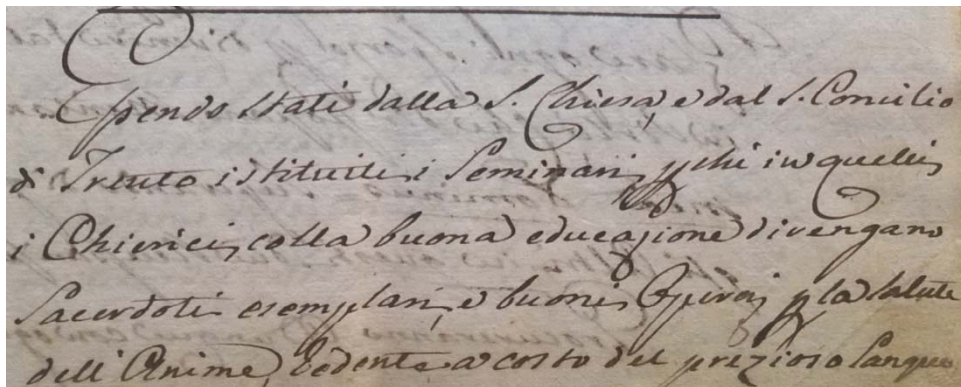 Essendo stati dalla S. Chiesa, e dal S. Concilio
di Trento istituiti i Seminarj, in quelli
i Chierici colla buona educazione divengano
Sacerdoti esemplari, e buoni Operaj p la salute
dell Anime, a costo del prezioso Sangue